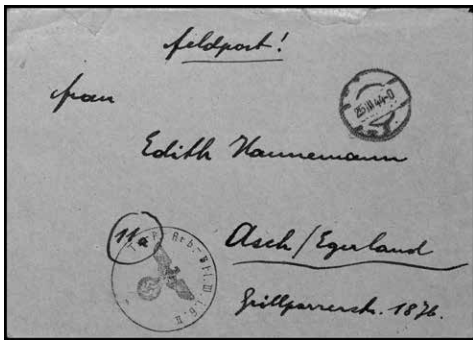 Feldpost!
Frau
25.III.44-0
Edith Hannemann
11a
Asch/Egerland
Grillparzerstr. 1876.